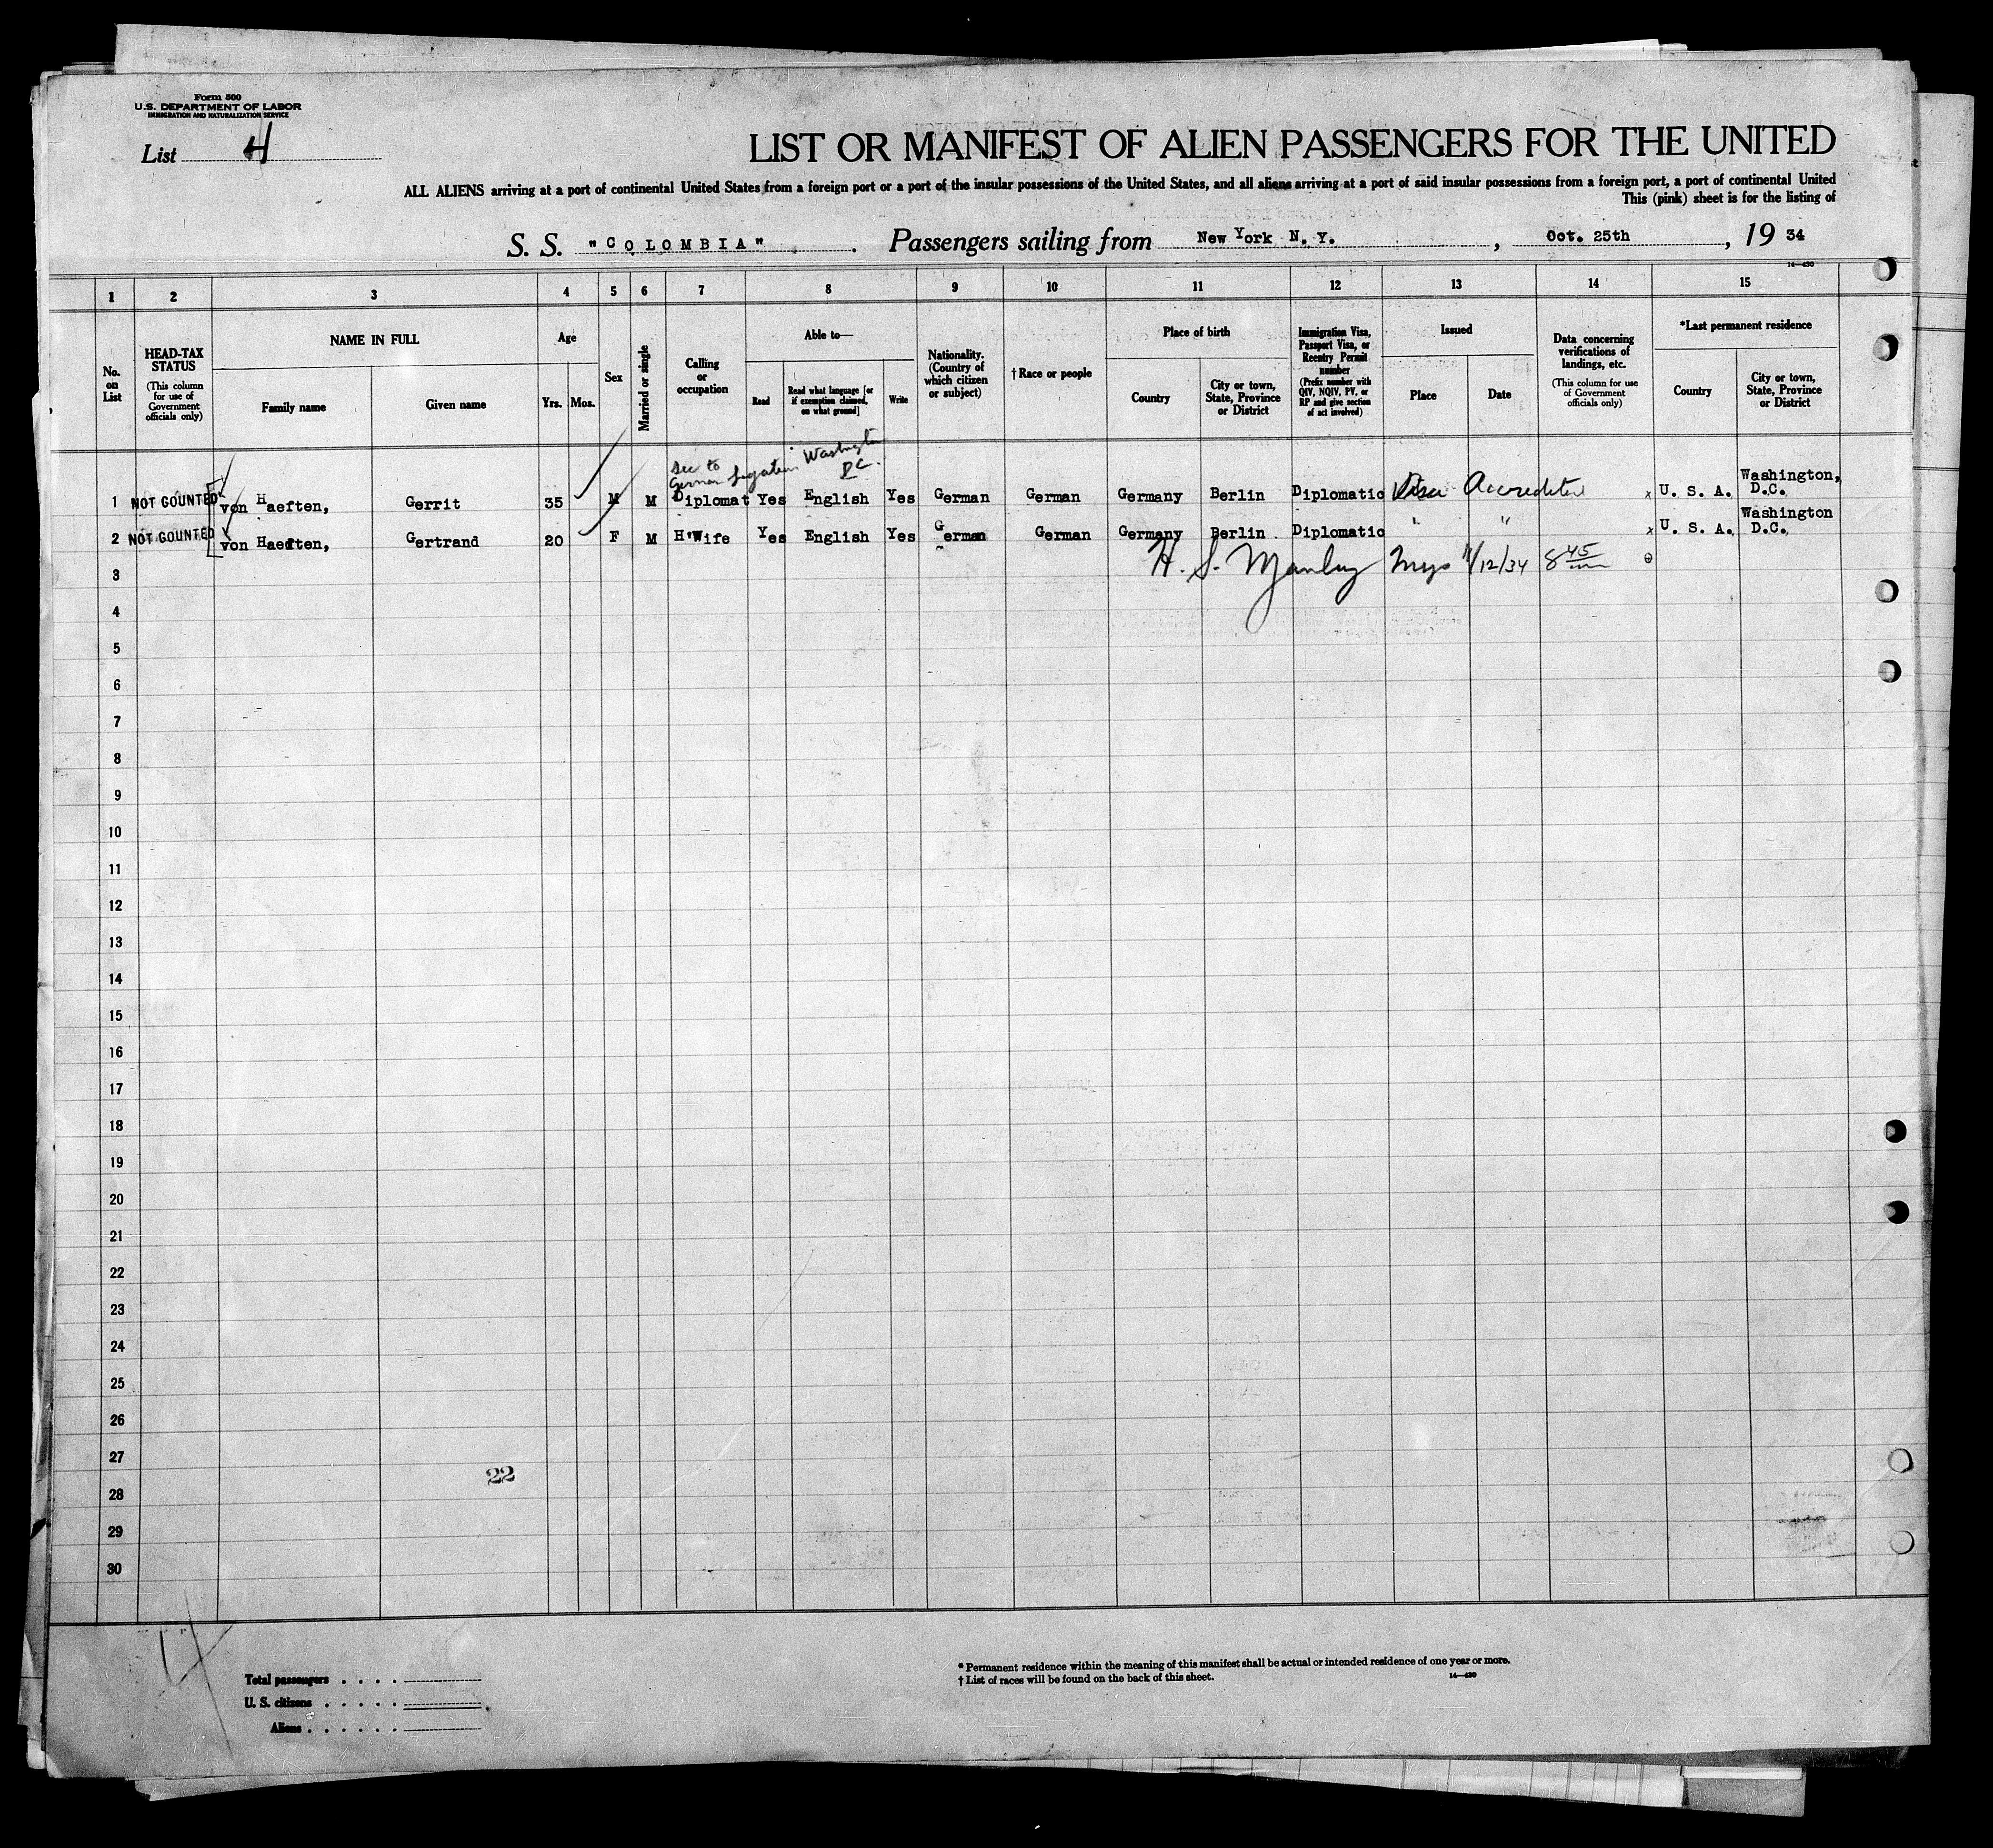 Form 500
U.S. DEPARTMENT OF LABOR
IMMIGRATION AND NATURALIZATION SERVICE
List 4
LIST OR MANIFEST OF ALIEN PASSENGERS FOR THE UNITED
ALL ALIENS arriving at a port of continental United States from a foreign port or a port of the insular possessions of the United States, and all aliens arriving at a port of said insular possessions from a foreign port, a port of continental United
This (pink) sheet is for the listing of
S. S. "COLOMBIA". Passengers sailing from New York N. Y., Oct. 25th, 19 34
14—430
1 2 3 4 5 6 7 8 9 10 11 12 13 14 15
No. on List
HEAD-TAX STATUS
(This column for use of Government officials only)
NAME IN FULL
Family name
Given name
Age
Yrs. Mos.
Sex
Married or single
Calling or occupation
Able to—
Read
Read what language [or if exemption claimed, on what ground]
Write
Nationality. (Country of which citizen or subject)
†Race or people
Place of birth
Country
City or town, State, Province or District
Immigration Visa, Passport Visa, or Reentry Permit number
(Prefix number with QIV, NQIV, PV, or RP and give section of act involved)
Issued
Place
Date
Data concerning verifications of landings, etc.
(This column for use of Government officials only)
*Last permanent residence
Country
City or town, State, Province or District
Sec to German Legation Washington D.C.
1 NOT COUNTED von Haeften, Gerrit 35 M M Diplomat Yes English Yes German German Germany Berlin Diplomatic Visa Accredited x U. S. A. Washington, D.C.
2 NOT COUNTED von Haeften, Gertrand 20 F M H'Wife Yes English Yes German German Germany Berlin Diplomatic " " x U. S. A. Washington D.C.
3 H. S. 11/12/34 8 45
4
5
6
7
8
9
10
11
12
13
14
15
16
17
18
19
20
21
22
23
24
25
26
27
22
28
29
30
Total passengers . . . .
U. S. citizens . . . . .
Aliens . . . . . .
* Permanent residence within the meaning of this manifest shall be actual or intended residence of one year or more.
† List of races will be found on the back of this sheet.
14—430